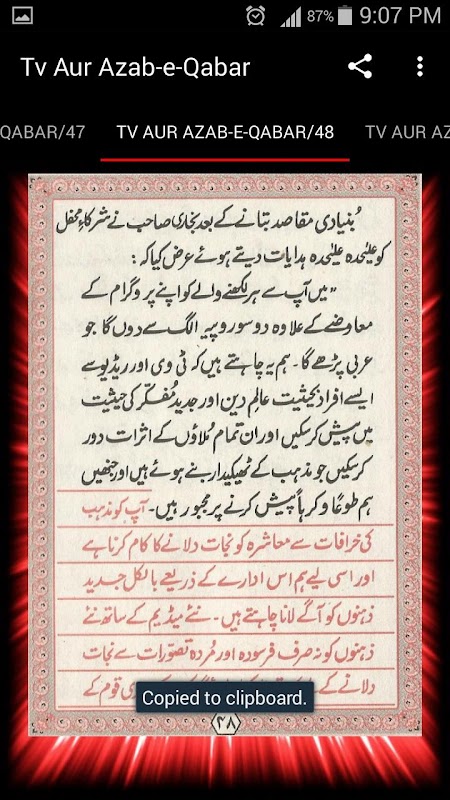 87% 9:07 PM
Tv Aur Azab-e-Qabar
QABAR/47 TV AUR AZAB-E-QABAR/48 TV AUR AZ
بُنیادی مقاصد بتانے کے بعد بخاری صاحب نے شرکاءِ محفل
کو علیٰحدہ علیٰحدہ ہدایات دیتے ہوئے عرض کیا کہ :
”میں آپ سے ہر لکھنے والے کو اپنے پروگرام کے
معاوضے کے علاوہ دو سو روپیہ الگ سے دوں گا جو
عربی پڑھے گا۔ ہم یہ چاہتے ہیں کہ ٹی وی اور ریڈیو سے
ایسے افراد بحیثیت عالمِ دین اور جدید مُفکّر کی حیثیت
میں پیش کر سکیں اور ان تمام مُلاؤں کے اثرات دور
کر سکیں جو مذہب کے ٹھیکیدار بنے ہوئے ہیں اور جنھیں
ہم طوعًا و کرہاً پیش کرنے پر مجبور ہیں۔ آپ کو مذہب
کی خرافات سے معاشرہ کو نجات دلانے کا کام کرنا ہے
اور اسی لیے ہم اس ادارے کے ذریعے بالکل جدید
ذہنوں کو آگے لانا چاہتے ہیں۔ نئے میڈیم کے ساتھ نئے
ذہنوں کو نہ صرف فرسودہ اور مُردہ تصوّرات سے نجات
دلانے کے قوم کے
Copied to clipboard.
۴۸